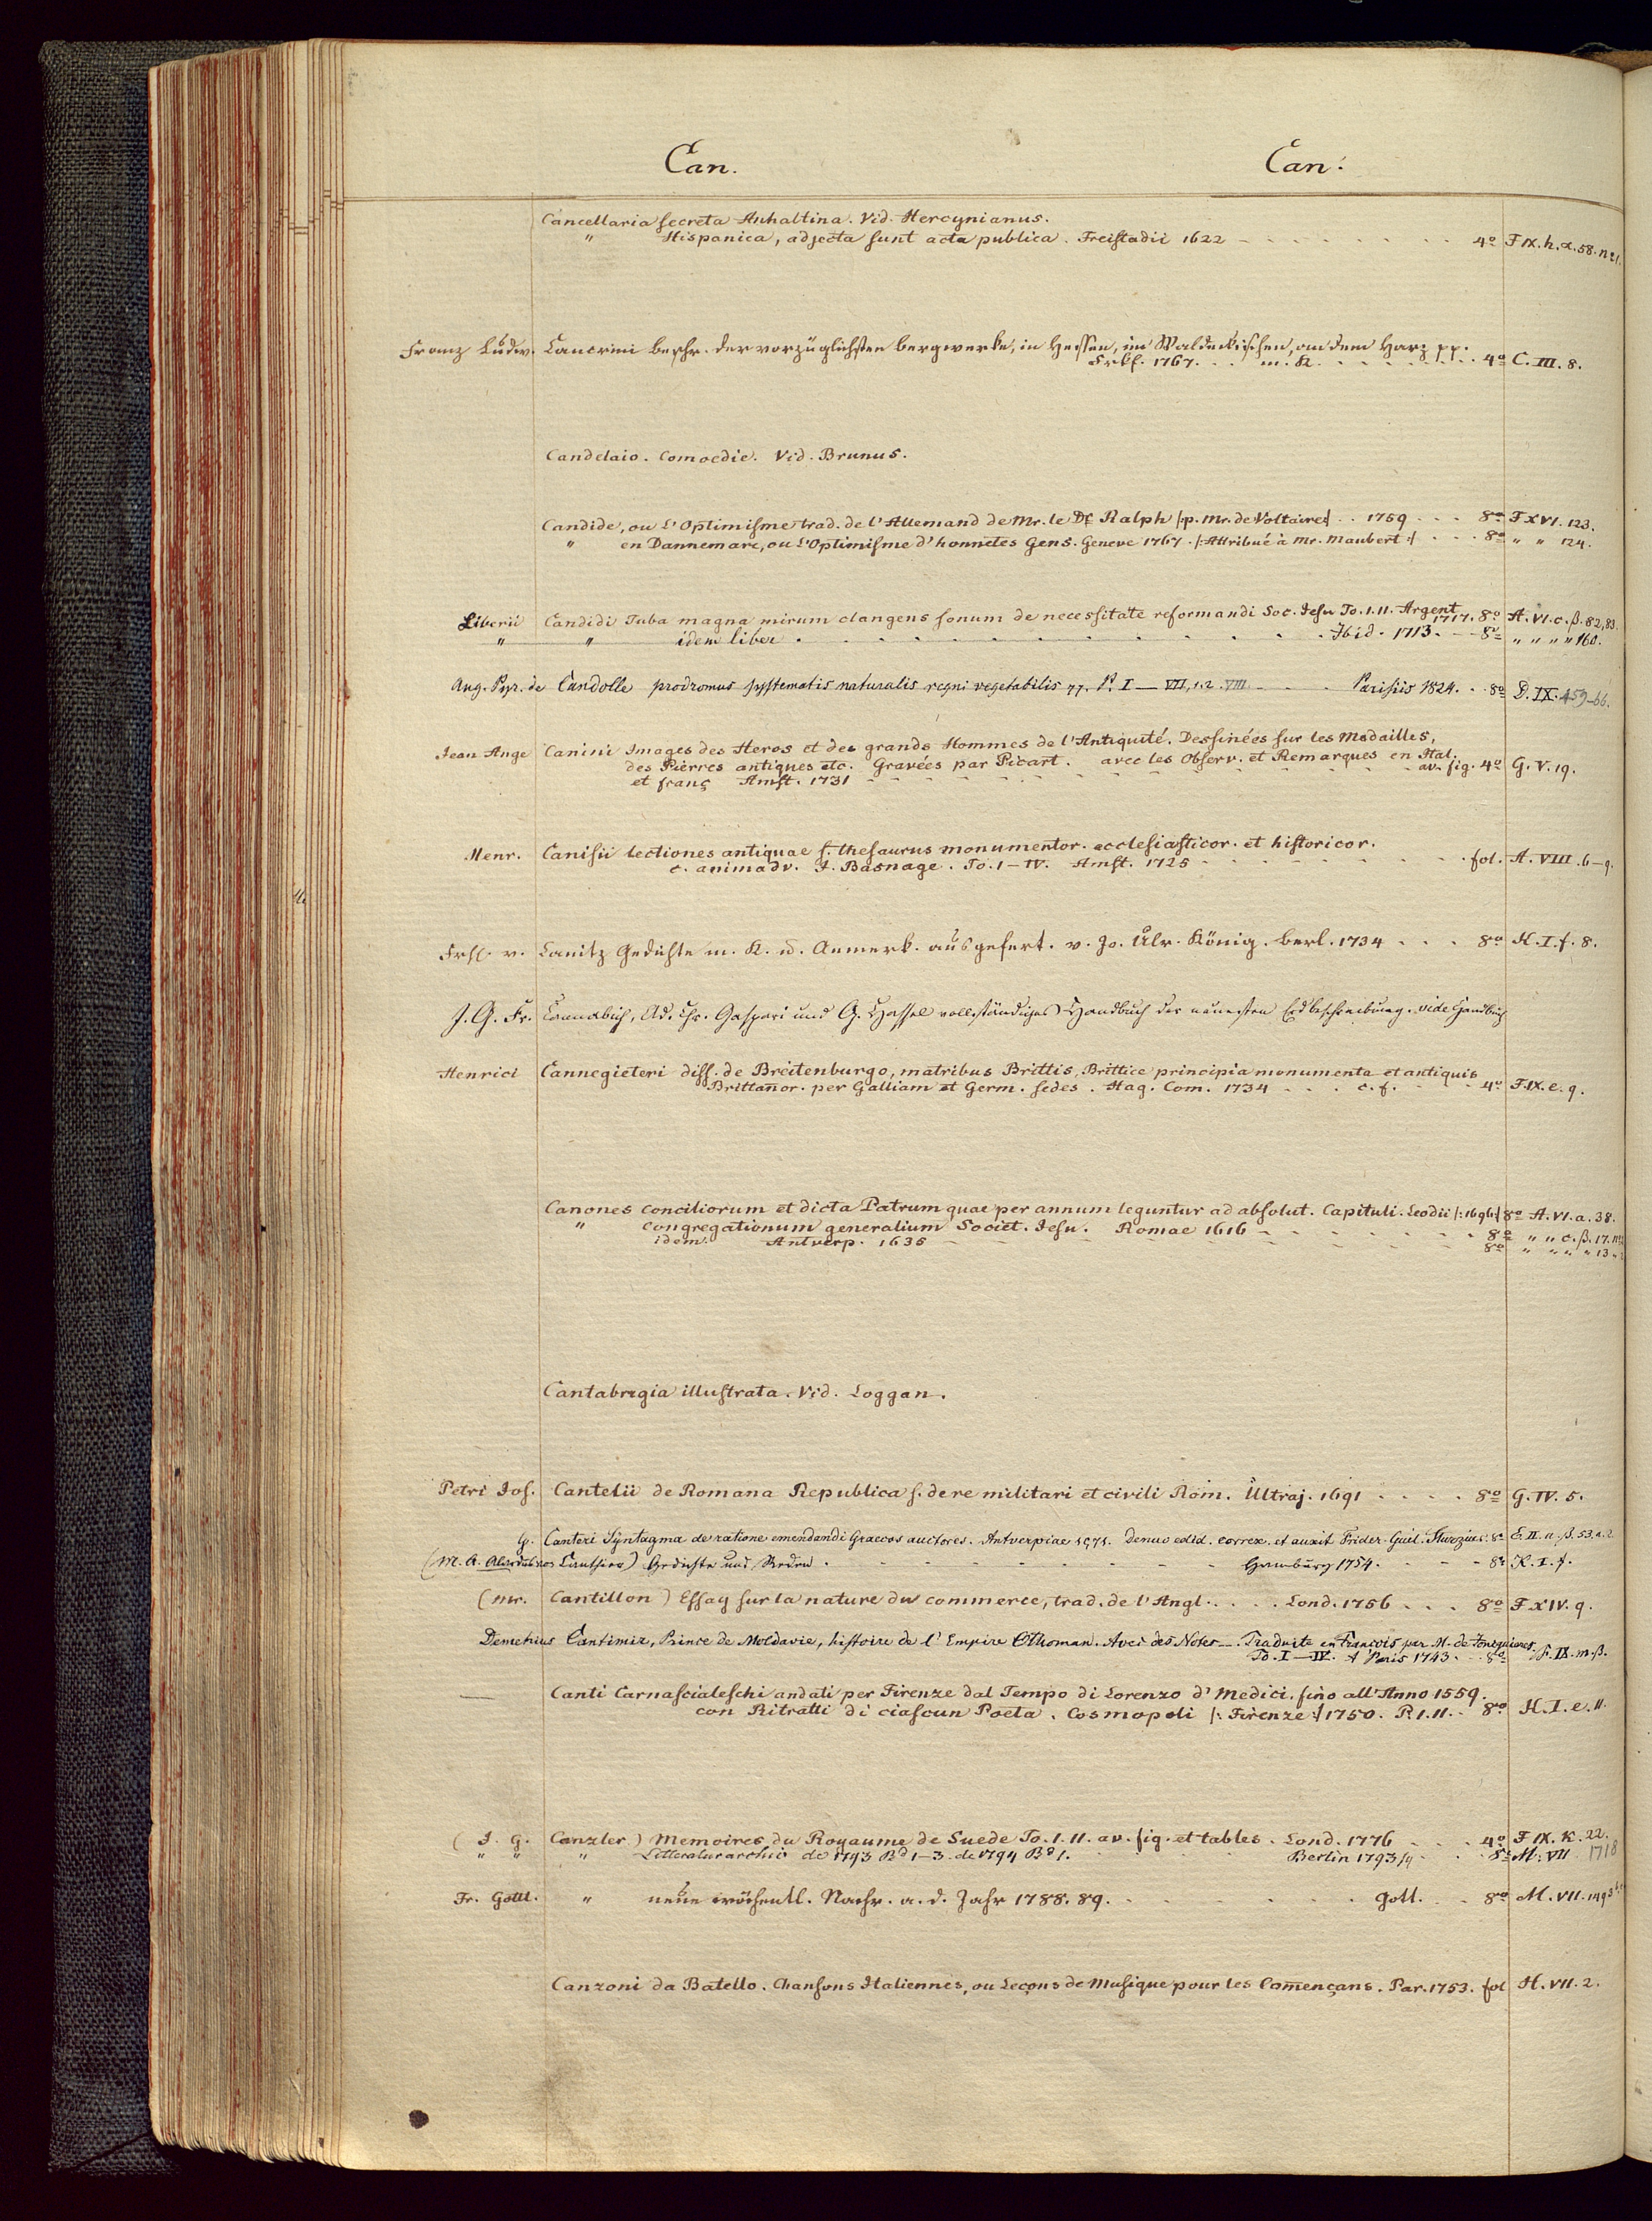 Can. Can.
Cancellaria secreta Anhaltina. Vid. Hercynianus.
" Hispanica, adjecta sunt acta publica. Freistadii 1622 - - - 4º F IX. h. α. 58. nº 1.
Franz Ludw. Cancrini beschr. der vorzüglichsten bergwerke, in Hessen, im Waldeckischen, an dem Harz pp.
Frkf. 1767. . . m. K. . . . 4º C. III. 8.
Candelaio. Comoedie. Vid. Brunus.
Candide, ou L'Optimisme trad. de l'Allemand de Mr. le Dr Ralph /:p. Mr. de Voltaire:/ . . 1759 . . . 8º F XVI. 123.
" en Dannemarc, ou L'Optimisme d'honnetes Gens. Geneve 1767. /:Attribué à Mr. Maubert:/ . . . 8º " " 124.
Liberii Candidi Tuba magna mirum clangens sonum de necessitate reformandi Soc. Jesu To. I. II. Argent. 1717. 8º A. VI. c. β. 82, 83.
" " idem liber . . . Ibid. 1713. - - 8º " " " " 160.
Aug. Pyr. de Candolle prodromus systematis naturalis regni vegetabilis pp. P. I — VII, 1. 2. VIII. - - Parisiis 1824. . 8º D. IX. 459-66.
Jean Ange Canini Images des Heros et des grands Hommes de l'Antiquité. Dessinées sur les Medailles,
des Pierres antiques etc. Gravées par Picart. avec les Observ. et Remarques en Ital.
et franç Amst. 1731 - - - av. fig. 4º G. V. 19.
Henr. Canisii lectiones antiquae s. thesaurus monumentor. ecclesiasticor. et historicor.
c. animadv. J. Basnage. To. I - IV. Amst. 1725 - - - fol. A. VIII. 6-9.
Frh. v. Canitz Gedichte m. K. u. Anmerk. ausgefert. v. Jo. Ulr. König. berl. 1734 . . . 8º H. I. f. 8.
J. G. Fr. Cannabich, Ad. Chr. Gaspari und G. Hassel vollständiges Handbuch der neuesten Erdbeschreibung. vide Handbuch
Henrici Cannegieteri diss. de Breitenburgo, matribus Brittis, Brittice principia monumenta et antiquis
Brittan̄or. per Galliam et Germ. sedes. Hag. Com. 1734 . . . c. f. - - 4º F. IX. e. 9.
Canones conciliorum et dicta Patrum quae per annum leguntur ad absolut. Capituli. Leodii /:1696:/ 8º A. VI. a. 38.
" congregationum generalium Societ. Jesu. Romae 1616 - - - 8º " " c. β. 17.
idem. Antverp. 1635 - - - 8º " " " " 13
Cantabrigia illustrata. Vid. Loggan.
Petri Jos. Cantelii de Romana Republica s. de re militari et civili Rom. Ultraj. 1691 . . . . 8º G. IV. 5.
G. Canteri Syntagma de ratione emendandi Graecos auctores. Antverpiae 1571. Denuo edid. correx. et auxit Frider. Guil. Sturzius. 8º E. II. a. β. 53. a. 2.
(M. A. Cauthier) Gedichte und Reden. - - - Hamburg 1754. - - - 8º K. I. f.
(Mr. Cantillon) Essay sur la nature du commerce, trad. de l'Angl. . . . Lond. 1756 . . . 8º F XIV. 9.
Demetrius Cantimir, Prince de Moldavie, histoire de l'Empire Othoman. Avec des Notes —. Traduite en François par M. de Jonquieres.
To. I — IV. A Paris 1743. - - 8º F. IX. m. β.
— Canti Carnascialeschi andati per Firenze dal Tempo di Lorenzo d'Medici, fino all'Anno 1559.
con Ritratti di ciascun Poeta. Cosmopoli /:Firenze:/ 1750. P. I. II. . 8º H. I. e. 11.
(J. G. Canzler) Memoires du Royaume de Suede To. I. II. av. fig. et tables. Lond. 1776 . . . 4º F IX. K. 22.
" " " Litteraturarchiv de 1793 Bd 1-3. de 1794 Bd 1. - - - Berlin 1793/4 - - - 8º M. VII 1718
Fr. Gottl. " neue wöchentl. Nachr. a. d. Jahr 1788. 89. - - - Gott. . . 8º M. VII. 149
Canzoni da Batello. Chansons Italiennes, ou Leçons de Musique pour les Com̄ençans. Par. 1753. fol H. VII. 2.